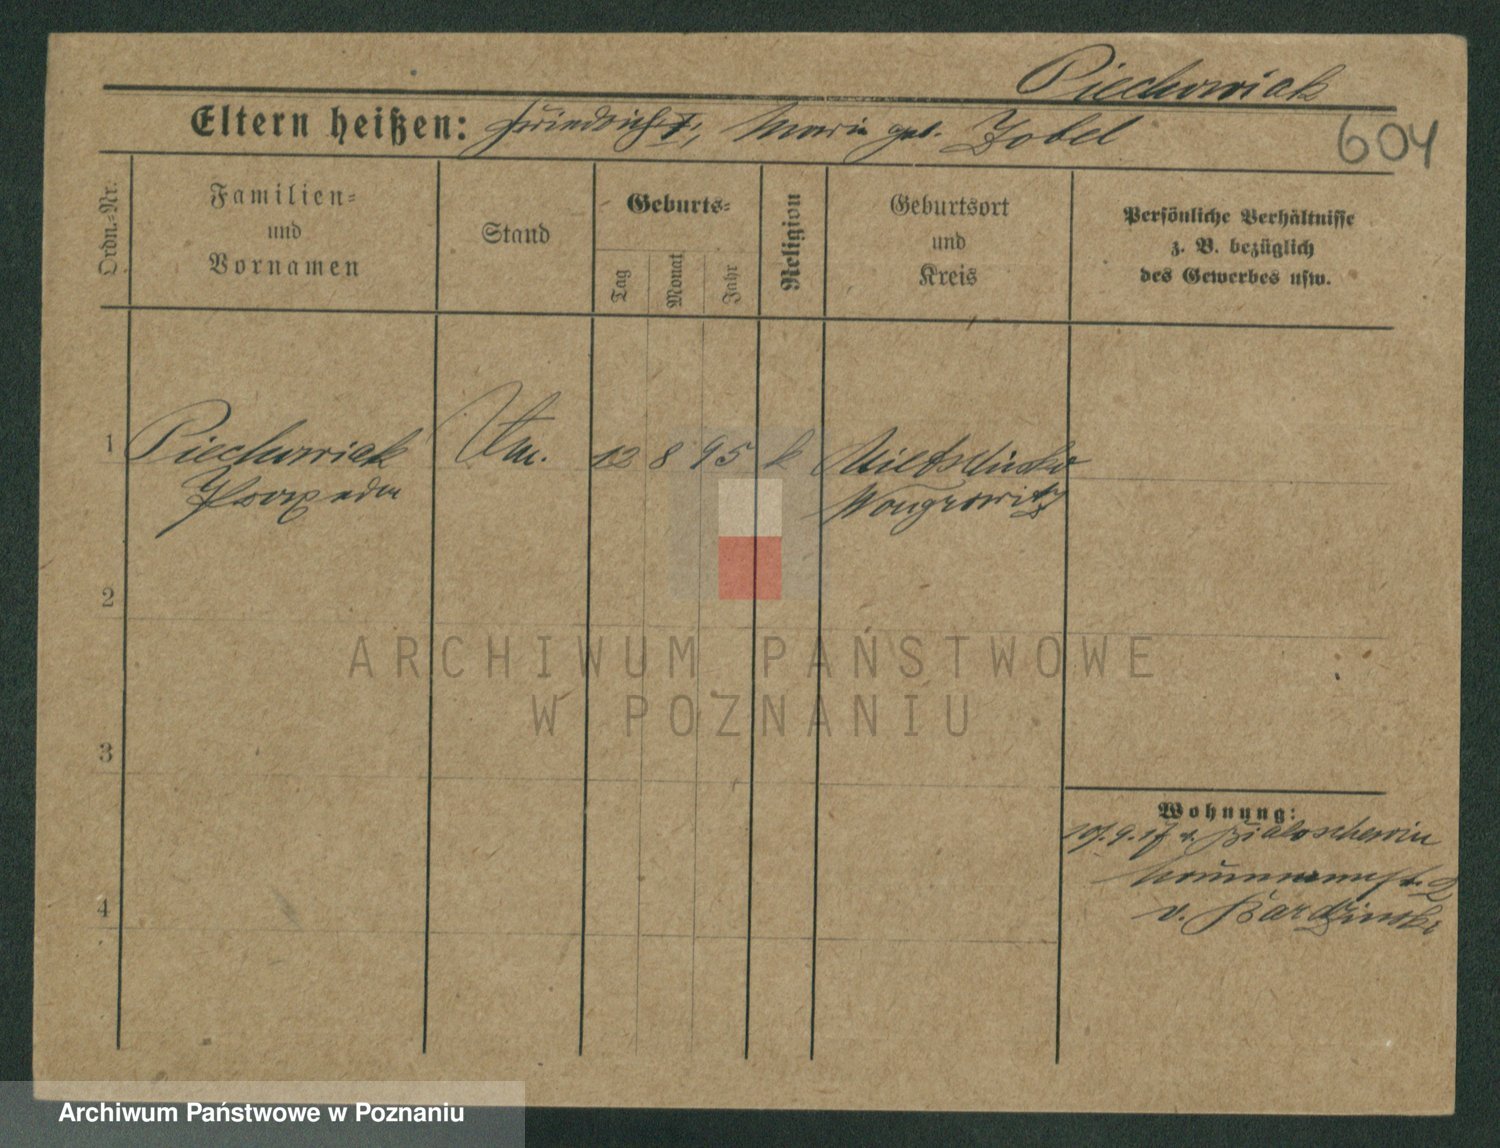 Piechowiak
604
Eltern heißen: Friedrich †, Maria geb. Zobel
Ordn.=Nr.
Familien=
und
Vornamen
Stand
Geburts=
Tag
Monat
Jahr
Religion
Geburtsort
und
Kreis
Persönliche Verhältnisse
z. B. bezüglich
des Gewerbes usw.
1 Piechowiak 12 8 95 k
Wongrowitz
2
3
4
Wohnung:
v. Bialoschewin
2
v.
ARCHIWUM PAŃSTWOWE
W POZNANIU
Archiwum Państwowe w Poznaniu